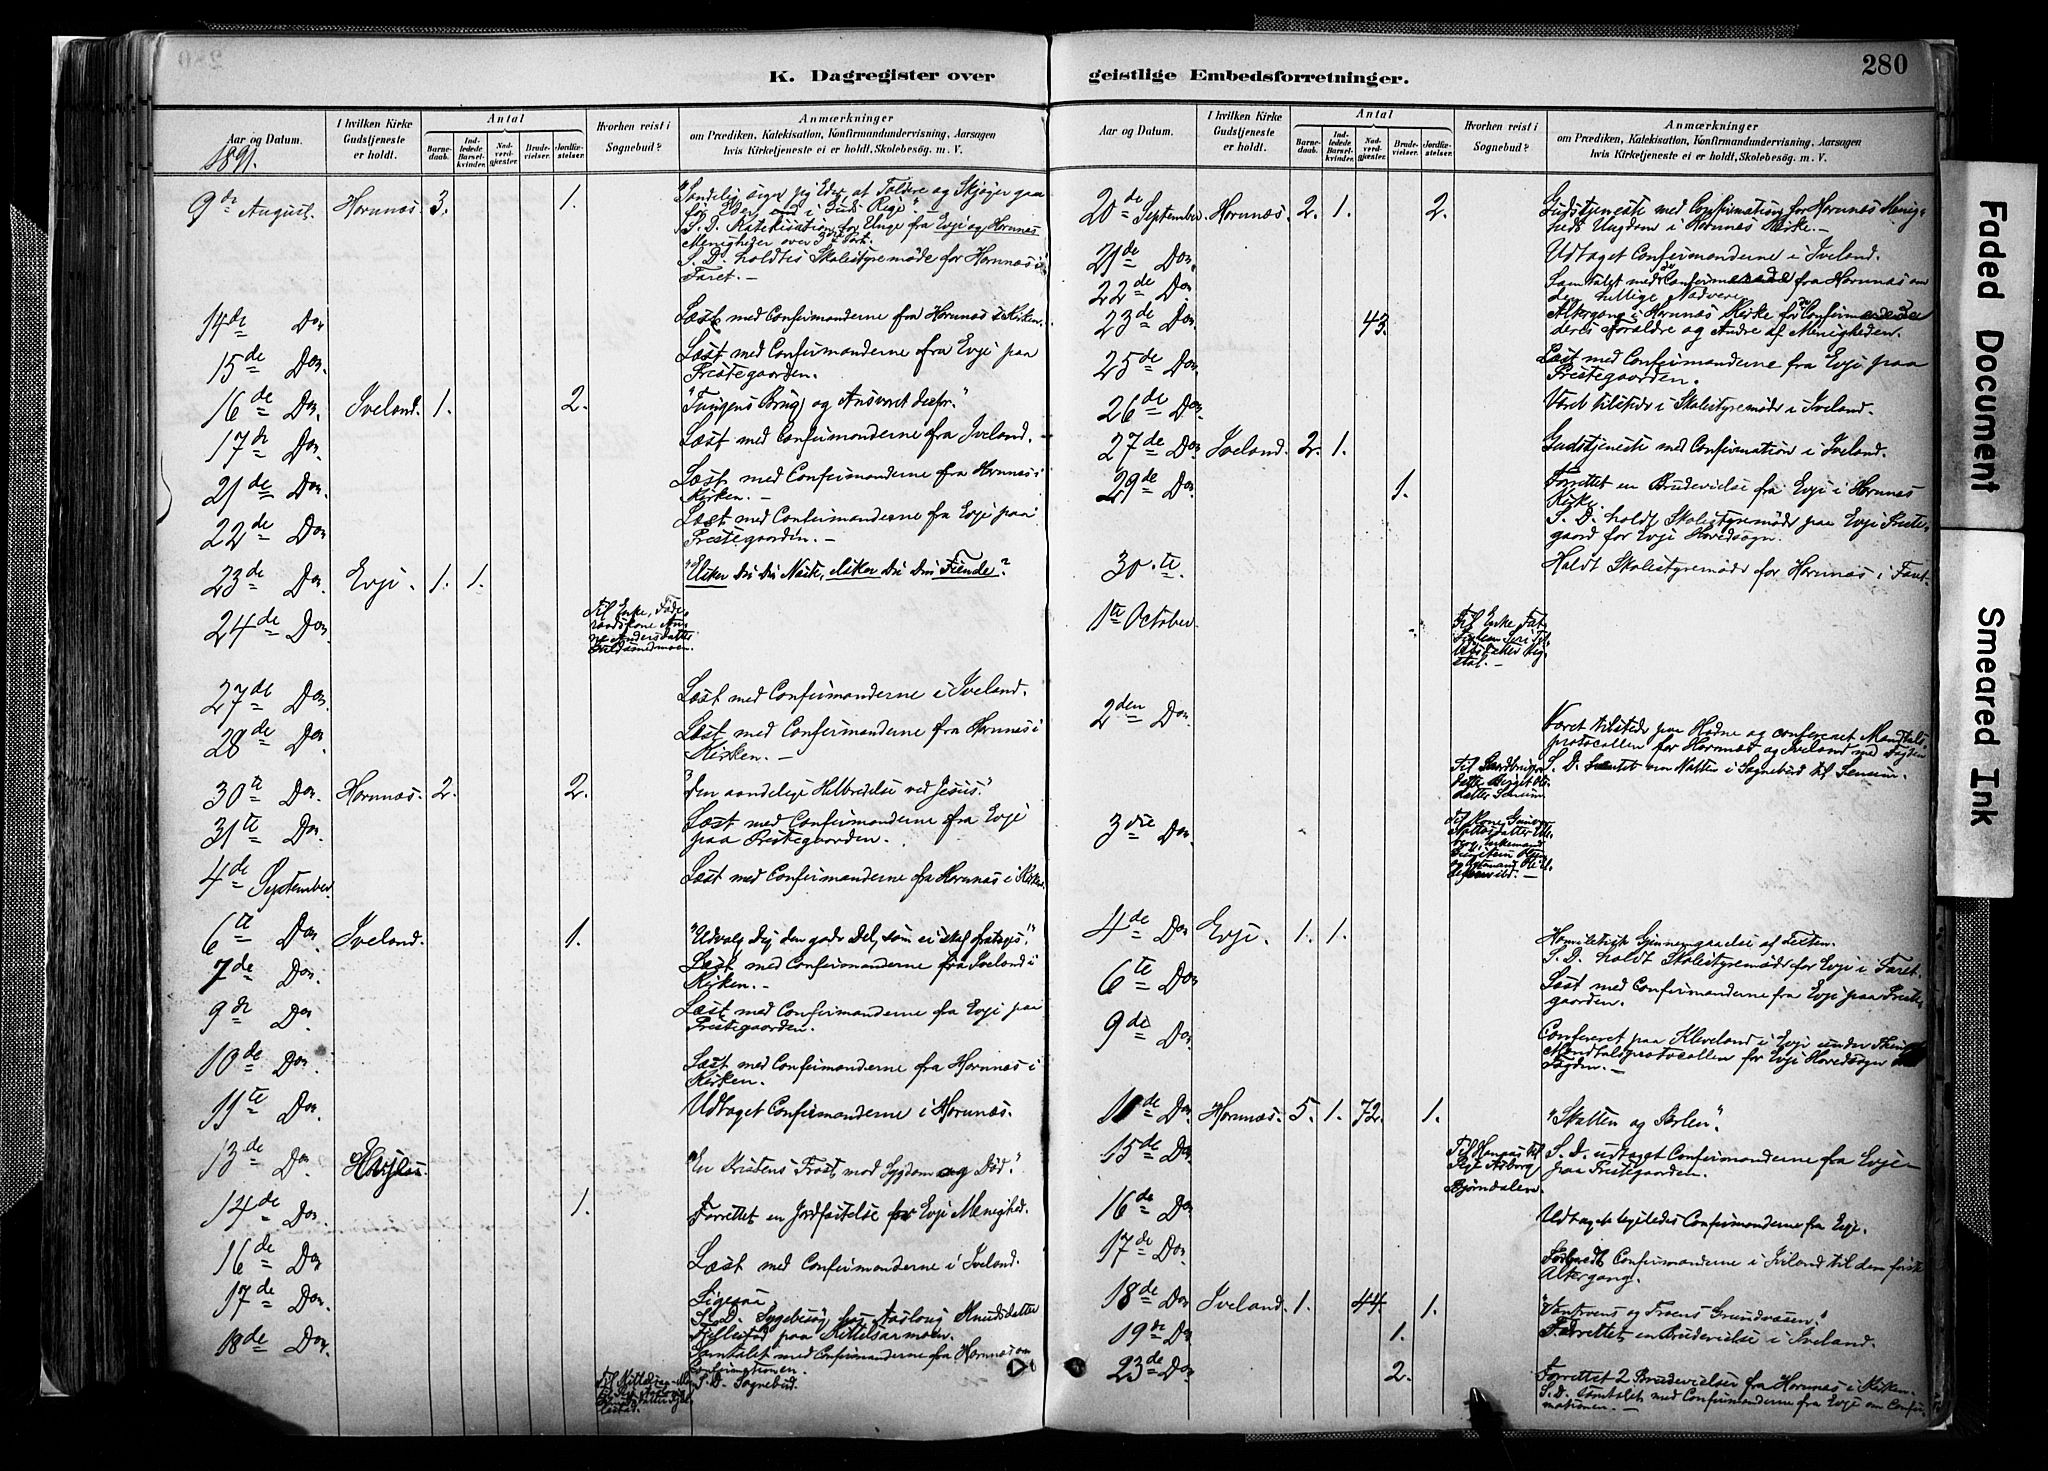 280
K. Dagregister over
geistlige Embedsforretninger.
Aar og Datum.
1891.
I hvilken Kirke
Gudstjeneste
er holdt.
Antal
Barne-
daab.
Ind-
ledede
Barsel-
kvinder.
Nad-
verd-
gjester.
Brude-
vielser.
Jordfæ-
stelser.
Hvorhen reist i
Sognebud?
Anmærkninger
om Prædiken, Katekisation, Konfirmandundervisning, Aarsagen
hvis Kirketjeneste ei er holdt, Skolebesøg. m. V.
9de August. Hornnæs. 3. 1. "Sandelig siger jeg Eder, at Toldere og Skjøger gaa
før Eder ind i Guds Rige"
S. D. Katekisation for Unge fra Evje og Hornnæs
Menigheder over 3die Part.
S. D. holdtes Skolestyremøde for Hornnæs i
Faret. —
14de Do. Læst med Confirmanderne fra Hornnæs i Kirken.
15de Do. Læst med Confirmanderne fra Evje paa
Prestegaarden.
16de Do. Iveland. 1. 2. "Tungens Brug og Ansvaret derfor."
17de Do. Læst med Confirmanderne fra Iveland. —
21de Do. Læst med Confirmanderne fra Hornnæs i
Kirken. —
22de Do. Læst med Confirmanderne fra Evje paa
Prestegaarden. —
23de Do. Evje. 1. 1. "Elsker din Næste, elsker din Fiende?
24de Do. Til Enke,
27de Do. Læst med Confirmanderne i Iveland.
28de Do. Læst med Confirmanderne fra Hornnæs i
Kirken. —
30te Do. Hornnæs. 2. 2. "Den aandelige Helbredelse ved Jesus."
31te Do. Læst med Confirmanderne fra Evje
paa Prestegaarden.
4de September. Læst med Confirmanderne fra Hornnæs i Kirken.
6te Do. Iveland. 1. "Udvalg dig den gode Del, som ei skal fratages."
7de Do. Læst med Confirmanderne fra Iveland i
Kirken. —
9de Do. Læst med Confirmanderne fra Evje paa
Prestegaarden.
10de Do. Læst med Confirmanderne fra Hornnæs i
Kirken.
11te Do. Udtaget Confirmanderne i Hornnæs.
13de Do. "En Kristens Trøst mod Sygdom og Død."
14de Do. 1. Forrettet en Jordfæstelse for Evje Menighed.
16de Do. Læst med Confirmanderne i Iveland.
17de Do. Ligesaa.
S. D. Sygebesøg hos Aaslaug Knudsdatter
Fjellestad paa Kittelsarmoen.
18de Do. Samtalet med Confirmanderne fra Hornnæs om
Confirmationen.
S. D. Sognebud.
Aar og Datum.
I hvilken Kirke
Gudstjeneste
er holdt.
Antal
Barne-
daab.
Ind-
ledede
Barsel-
kvinder.
Nad-
verd-
gjester.
Brude-
vielser.
Jordfæ-
stelser.
Hvorhen reist i
Sognebud?
Anmærkninger
om Prædiken, Katekisation, Konfirmandundervisning, Aarsagen
hvis Kirketjeneste ei er holdt, Skolebesøg. m. V.
20de September. Hornnæs. 2. 1. 2. Gudstjeneste med Confirmation for Hornnæs Menig-
heds Ungdom i Hornnæs Kirke. —
21de Do. Udtaget Confirmanderne i Iveland.
22de Do. Samtalet med Confirmerede fra Hornnæs om
den hellige Nadvere.
23de Do. 43. Altergang i Hornnæs Kirke for Confirmerede
deres Forældre og Andre af Menigheden.
25de Do. Læst med Confirmanderne fra Evje paa
Prestegaarden.
26de Do. Været tilstede i Skolestyremøde i Iveland.
27de Do. Iveland. 2. 1. Gudstjeneste med Confirmation i Iveland.
29de Do. 1. Forrettet en Brudevielse fra Evje i Hornnæs
Kirke.
S. D. holdt Skolestyremøde paa Evje Preste-
gaard for Evje Hovedsogn.
30.te Holdt Skolestyremøde for Hornnæs i Faret.
1te October. Til Enke
2den Do. Været tilstede paa Hodne og confereret Mandtals-
protocollen for Hornnæs og Iveland med Fogden
S. D. hentet om Natten i Sognebud til Senum.
3die Do. Til Kone
4de Do. Evje. 1. 1. Homiletisk Gjennemgaaelse af Texten.
S. D. holdt Skolestyremøde for Evje i Faret.
6te Do. Læst med Confirmanderne fra Evje paa Preste-
gaarden.
9de Do. Confereret paa Kleveland i Evje
Mandtalsprotocollen for Evje Hovedsogn
Fogden. —
11de Do. Hornnæs. 5. 1. 72. 1. "Skatten og Perlen."
15de Do. S. D. udtaget Confirmanderne fra Evje
paa Prestegaarden.
Bjørndalen.
16de Do. Udtaget ligeledes Confirmanderne fra Evje.
17de Do. Confirmanderne i Iveland til den første
Altergang.
18de Do. Iveland. 1. 44. 1. "Vantroens og Troens Grundvæsen."
19de Do. 1. Forrettet en Brudevielse i Iveland.
23de Do. 2. Forrettet 2 Brudevielser fra Hornnæs i Kirken.
S. D. Samtalet med Confirmanderne fra Evje om Confir-
mationen. —
Faded Document
Smeared Ink